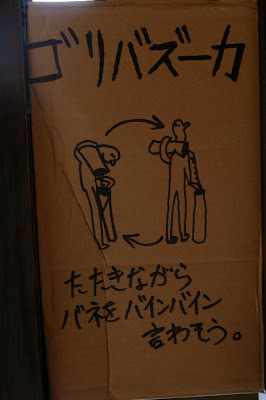 ゴリバズーカ
たたきながら
バネをバインバイン
言わそう。